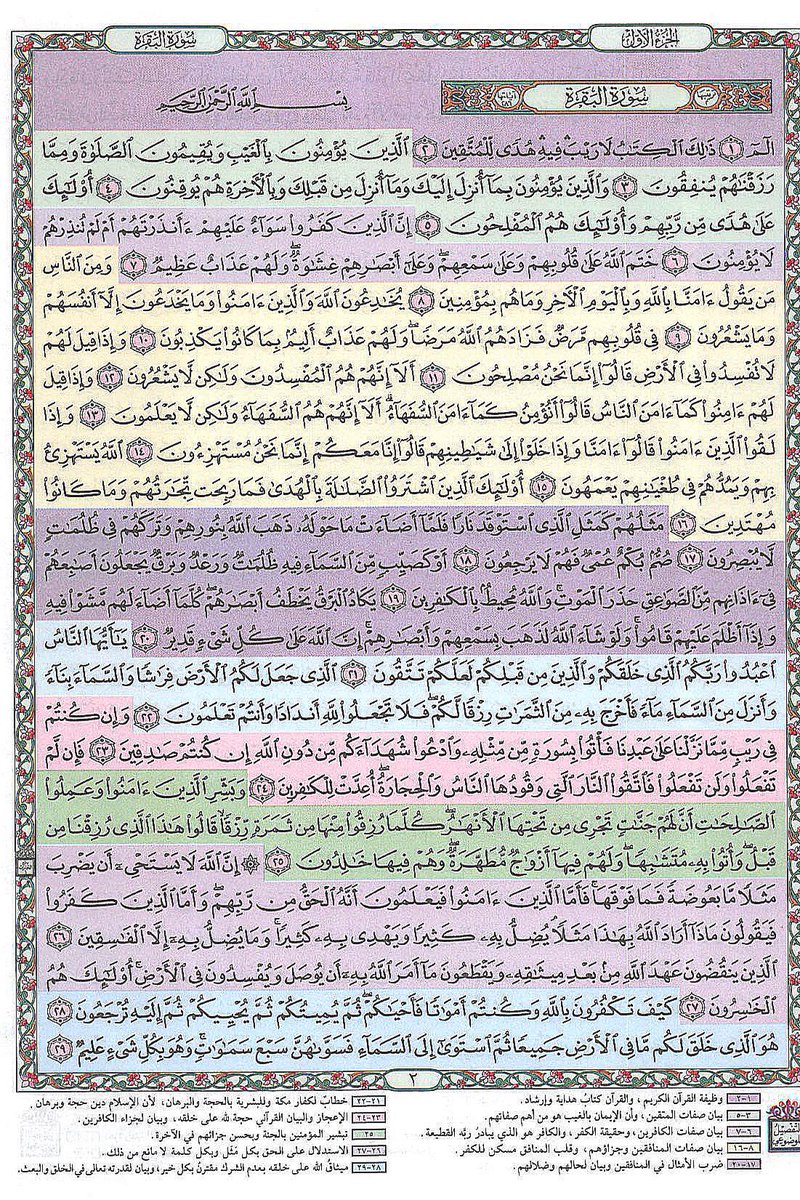 سورة البقرة
الجزء الأول
سورة البقرة
بسم الله الرحمن الرحيم
الٓمٓ ١ ذَٰلِكَ الْكِتَابُ لَا رَيْبَ فِيهِ هُدًى لِّلْمُتَّقِينَ ٢ الَّذِينَ يُؤْمِنُونَ بِالْغَيْبِ وَيُقِيمُونَ الصَّلَوٰةَ وَمِمَّا
رَزَقْنَاهُمْ يُنفِقُونَ ٣ وَالَّذِينَ يُؤْمِنُونَ بِمَا أُنزِلَ إِلَيْكَ وَمَا أُنزِلَ مِن قَبْلِكَ وَبِالْآخِرَةِ هُمْ يُوقِنُونَ ٤ أُو۟لَٰئِكَ
عَلَىٰ هُدًى مِّن رَّبِّهِمْ وَأُو۟لَٰئِكَ هُمُ الْمُفْلِحُونَ ٥ إِنَّ الَّذِينَ كَفَرُوا سَوَاءٌ عَلَيْهِمْ ءَأَنذَرْتَهُمْ أَمْ لَمْ تُنذِرْهُمْ
لَا يُؤْمِنُونَ ٦ خَتَمَ اللَّهُ عَلَىٰ قُلُوبِهِمْ وَعَلَىٰ سَمْعِهِمْ وَعَلَىٰ أَبْصَارِهِمْ غِشَاوَةٌ وَلَهُمْ عَذَابٌ عَظِيمٌ ٧ وَمِنَ النَّاسِ
مَن يَقُولُ ءَامَنَّا بِاللَّهِ وَبِالْيَوْمِ الْآخِرِ وَمَا هُم بِمُؤْمِنِينَ ٨ يُخَادِعُونَ اللَّهَ وَالَّذِينَ ءَامَنُوا وَمَا يَخْدَعُونَ إِلَّا أَنفُسَهُمْ
وَمَا يَشْعُرُونَ ٩ فِي قُلُوبِهِم مَّرَضٌ فَزَادَهُمُ اللَّهُ مَرَضًا وَلَهُمْ عَذَابٌ أَلِيمٌ بِمَا كَانُوا يَكْذِبُونَ ١٠ وَإِذَا قِيلَ لَهُمْ
لَا تُفْسِدُوا فِي الْأَرْضِ قَالُوا إِنَّمَا نَحْنُ مُصْلِحُونَ ١١ أَلَا إِنَّهُمْ هُمُ الْمُفْسِدُونَ وَلَٰكِن لَّا يَشْعُرُونَ ١٢ وَإِذَا قِيلَ
لَهُمْ ءَامِنُوا كَمَا ءَامَنَ النَّاسُ قَالُوا أَنُؤْمِنُ كَمَا ءَامَنَ السُّفَهَاءُ أَلَا إِنَّهُمْ هُمُ السُّفَهَاءُ وَلَٰكِن لَّا يَعْلَمُونَ ١٣ وَإِذَا
لَقُوا الَّذِينَ ءَامَنُوا قَالُوا ءَامَنَّا وَإِذَا خَلَوْا إِلَىٰ شَيَاطِينِهِمْ قَالُوا إِنَّا مَعَكُمْ إِنَّمَا نَحْنُ مُسْتَهْزِءُونَ ١٤ اللَّهُ يَسْتَهْزِئُ
بِهِمْ وَيَمُدُّهُمْ فِي طُغْيَانِهِمْ يَعْمَهُونَ ١٥ أُو۟لَٰئِكَ الَّذِينَ اشْتَرَوُا الضَّلَالَةَ بِالْهُدَىٰ فَمَا رَبِحَت تِّجَارَتُهُمْ وَمَا كَانُوا
مُهْتَدِينَ ١٦ مَثَلُهُمْ كَمَثَلِ الَّذِي اسْتَوْقَدَ نَارًا فَلَمَّا أَضَاءَتْ مَا حَوْلَهُ ذَهَبَ اللَّهُ بِنُورِهِمْ وَتَرَكَهُمْ فِي ظُلُمَاتٍ
لَّا يُبْصِرُونَ ١٧ صُمٌّ بُكْمٌ عُمْيٌ فَهُمْ لَا يَرْجِعُونَ ١٨ أَوْ كَصَيِّبٍ مِّنَ السَّمَاءِ فِيهِ ظُلُمَاتٌ وَرَعْدٌ وَبَرْقٌ يَجْعَلُونَ أَصَابِعَهُمْ
فِي ءَاذَانِهِم مِّنَ الصَّوَاعِقِ حَذَرَ الْمَوْتِ وَاللَّهُ مُحِيطٌ بِالْكَافِرِينَ ١٩ يَكَادُ الْبَرْقُ يَخْطَفُ أَبْصَارَهُمْ كُلَّمَا أَضَاءَ لَهُم مَّشَوْا فِيهِ
وَإِذَا أَظْلَمَ عَلَيْهِمْ قَامُوا وَلَوْ شَاءَ اللَّهُ لَذَهَبَ بِسَمْعِهِمْ وَأَبْصَارِهِمْ إِنَّ اللَّهَ عَلَىٰ كُلِّ شَيْءٍ قَدِيرٌ ٢٠ يَا أَيُّهَا النَّاسُ
اعْبُدُوا رَبَّكُمُ الَّذِي خَلَقَكُمْ وَالَّذِينَ مِن قَبْلِكُمْ لَعَلَّكُمْ تَتَّقُونَ ٢١ الَّذِي جَعَلَ لَكُمُ الْأَرْضَ فِرَاشًا وَالسَّمَاءَ بِنَاءً
وَأَنزَلَ مِنَ السَّمَاءِ مَاءً فَأَخْرَجَ بِهِ مِنَ الثَّمَرَاتِ رِزْقًا لَّكُمْ فَلَا تَجْعَلُوا لِلَّهِ أَندَادًا وَأَنتُمْ تَعْلَمُونَ ٢٢ وَإِن كُنتُمْ
فِي رَيْبٍ مِّمَّا نَزَّلْنَا عَلَىٰ عَبْدِنَا فَأْتُوا بِسُورَةٍ مِّن مِّثْلِهِ وَادْعُوا شُهَدَاءَكُم مِّن دُونِ اللَّهِ إِن كُنتُمْ صَادِقِينَ ٢٣ فَإِن لَّمْ
تَفْعَلُوا وَلَن تَفْعَلُوا فَاتَّقُوا النَّارَ الَّتِي وَقُودُهَا النَّاسُ وَالْحِجَارَةُ أُعِدَّتْ لِلْكَافِرِينَ ٢٤ وَبَشِّرِ الَّذِينَ ءَامَنُوا وَعَمِلُوا
الصَّالِحَاتِ أَنَّ لَهُمْ جَنَّاتٍ تَجْرِي مِن تَحْتِهَا الْأَنْهَارُ كُلَّمَا رُزِقُوا مِنْهَا مِن ثَمَرَةٍ رِّزْقًا قَالُوا هَٰذَا الَّذِي رُزِقْنَا مِن
قَبْلُ وَأُتُوا بِهِ مُتَشَابِهًا وَلَهُمْ فِيهَا أَزْوَاجٌ مُّطَهَّرَةٌ وَهُمْ فِيهَا خَالِدُونَ ٢٥ ۞ إِنَّ اللَّهَ لَا يَسْتَحْيِي أَن يَضْرِبَ
مَثَلًا مَّا بَعُوضَةً فَمَا فَوْقَهَا فَأَمَّا الَّذِينَ ءَامَنُوا فَيَعْلَمُونَ أَنَّهُ الْحَقُّ مِن رَّبِّهِمْ وَأَمَّا الَّذِينَ كَفَرُوا
فَيَقُولُونَ مَاذَا أَرَادَ اللَّهُ بِهَٰذَا مَثَلًا يُضِلُّ بِهِ كَثِيرًا وَيَهْدِي بِهِ كَثِيرًا وَمَا يُضِلُّ بِهِ إِلَّا الْفَاسِقِينَ ٢٦
الَّذِينَ يَنقُضُونَ عَهْدَ اللَّهِ مِن بَعْدِ مِيثَاقِهِ وَيَقْطَعُونَ مَا أَمَرَ اللَّهُ بِهِ أَن يُوصَلَ وَيُفْسِدُونَ فِي الْأَرْضِ أُو۟لَٰئِكَ هُمُ
الْخَاسِرُونَ ٢٧ كَيْفَ تَكْفُرُونَ بِاللَّهِ وَكُنتُمْ أَمْوَاتًا فَأَحْيَاكُمْ ثُمَّ يُمِيتُكُمْ ثُمَّ يُحْيِيكُمْ ثُمَّ إِلَيْهِ تُرْجَعُونَ ٢٨
هُوَ الَّذِي خَلَقَ لَكُم مَّا فِي الْأَرْضِ جَمِيعًا ثُمَّ اسْتَوَىٰ إِلَى السَّمَاءِ فَسَوَّاهُنَّ سَبْعَ سَمَاوَاتٍ وَهُوَ بِكُلِّ شَيْءٍ عَلِيمٌ ٢٩
٢
١-٢ وظيفة القرآن الكريم، والقرآن كتابُ هداية وإرشاد.
٣-٥ بيان صفات المتقين، وأن الإيمان بالغيب هو من أهم صفاتهم.
٦-٧ بيان صفات الكافرين، وحقيقة الكفر، والكافر هو الذي يبادرُ ربَّه القطيعة.
٨-١٦ بيان صفات المنافقين وجزاؤهم، وقلب المنافق مسكن للكفر.
١٧-٢٠ ضرب الأمثال في المنافقين وبيان لحالهم وضلالهم.
٢١-٢٢ خطابٌ لكفار مكة وللبشرية بالحجة والبرهان، لأن الإسلام دين حجة وبرهان.
٢٣-٢٤ الإعجاز والبيان القرآني حجة لله على خلقه، وبيان لجزاء الكافرين.
٢٥ تبشير المؤمنين بالجنة وبحسن جزائهم في الآخرة.
٢٦-٢٧ الاستدلال على الحق بكل مَثَل وبكل كلمة لا مانع من ذلك.
٢٨-٢٩ ميثاقُ الله على خلقه بعدم الشرك مقترنٌ بكل خير، وبيان لقدرته تعالى في الخلق والبعث.
التفصيل الموضوعي